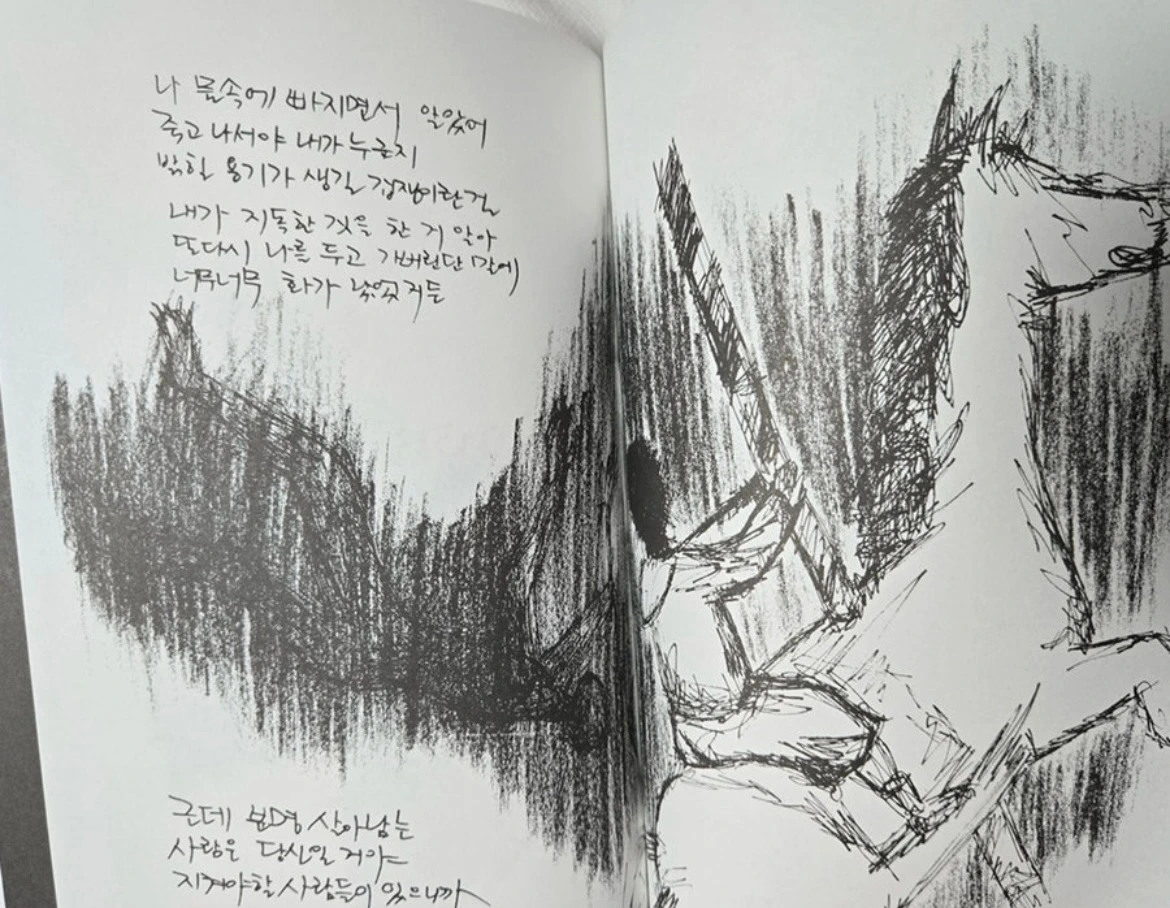 나 물속에 빠지면서 알았어
죽고 나서야 내가 누군지
밝힐 용기가 생길 겁쟁이란 걸
내가 지독한 것을 한 거 알아
또다시 나를 두고 가버린단 말에
너무너무 화가 났었거든
근데 분명 살아남는
사람은 당신일 거야
지켜야할 사람들이 있으니까